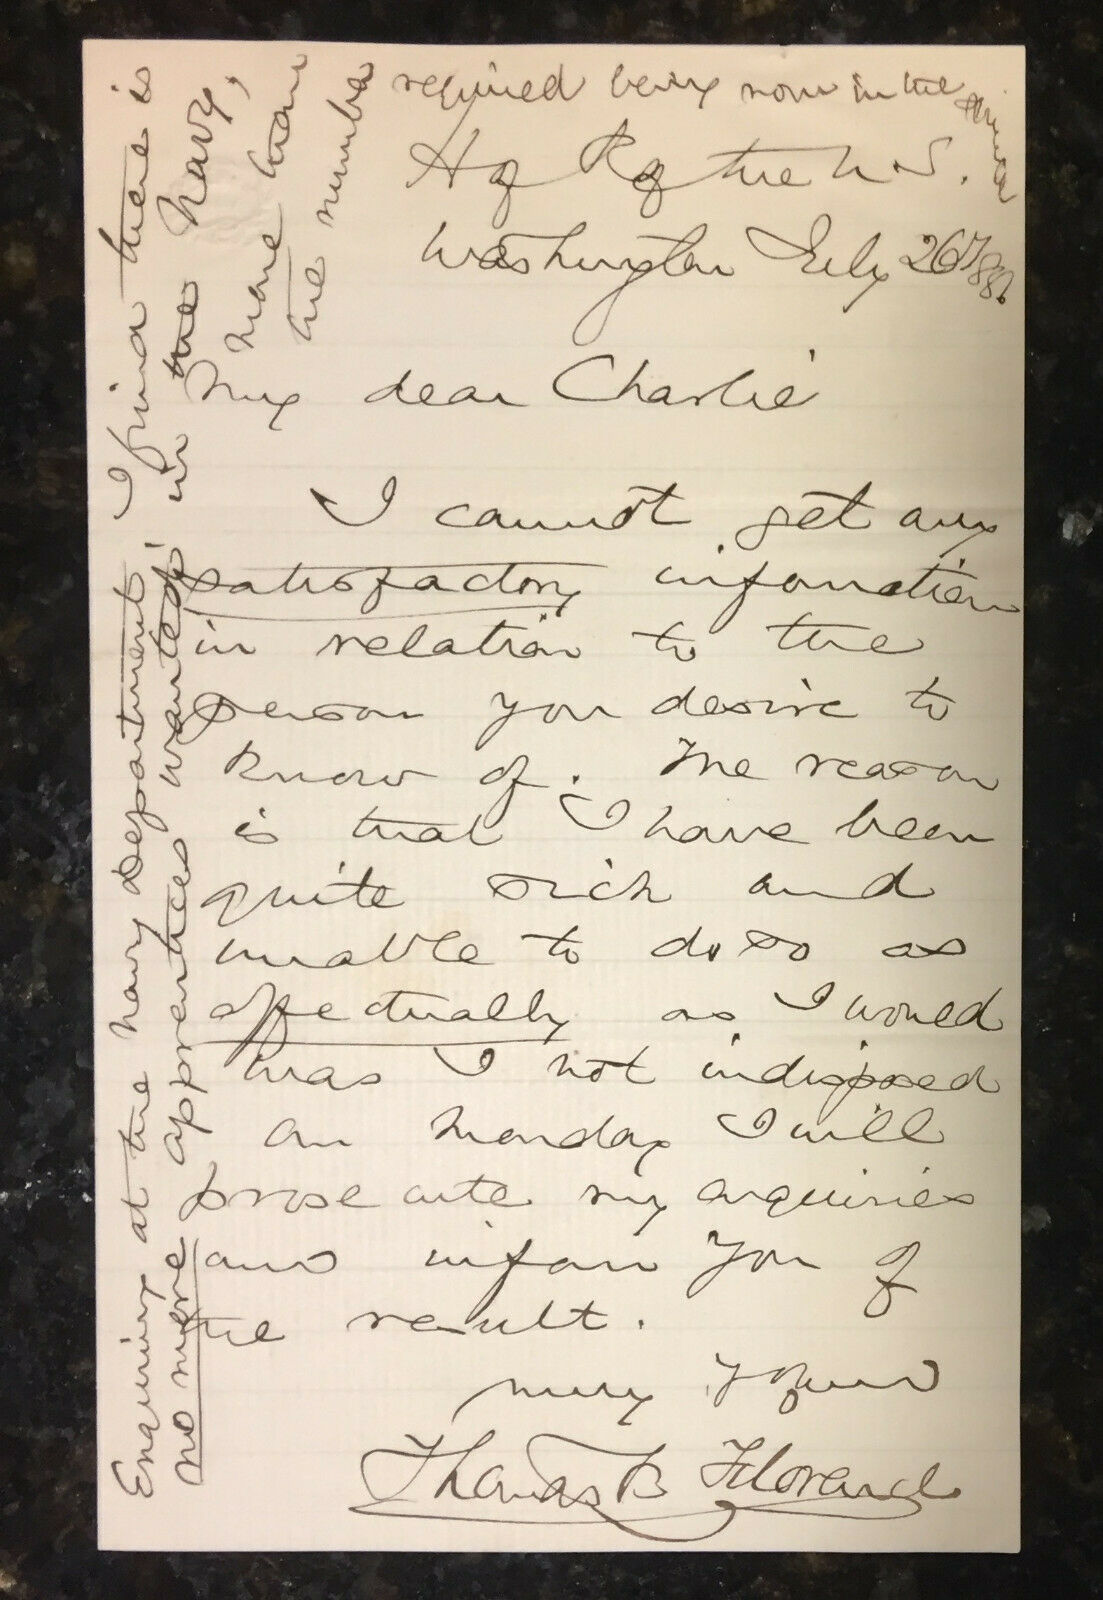 H of R of the U.S.
Washington July 26
My dear Charlie
I cannot get any
satisfactory information
in relation to the
person you desire to
know of. The reason
is that I have been
quite sick and
unable to do so as
effectually as I would
was I not indisposed
On Monday I will
prosecute my enquiries
and inform you of
the result.
Truly Yours
Thomas B Florence
Enquiring at the navy department, I find there is
no more apprentices wanted in the navy,
more than
the number
required being now in the service